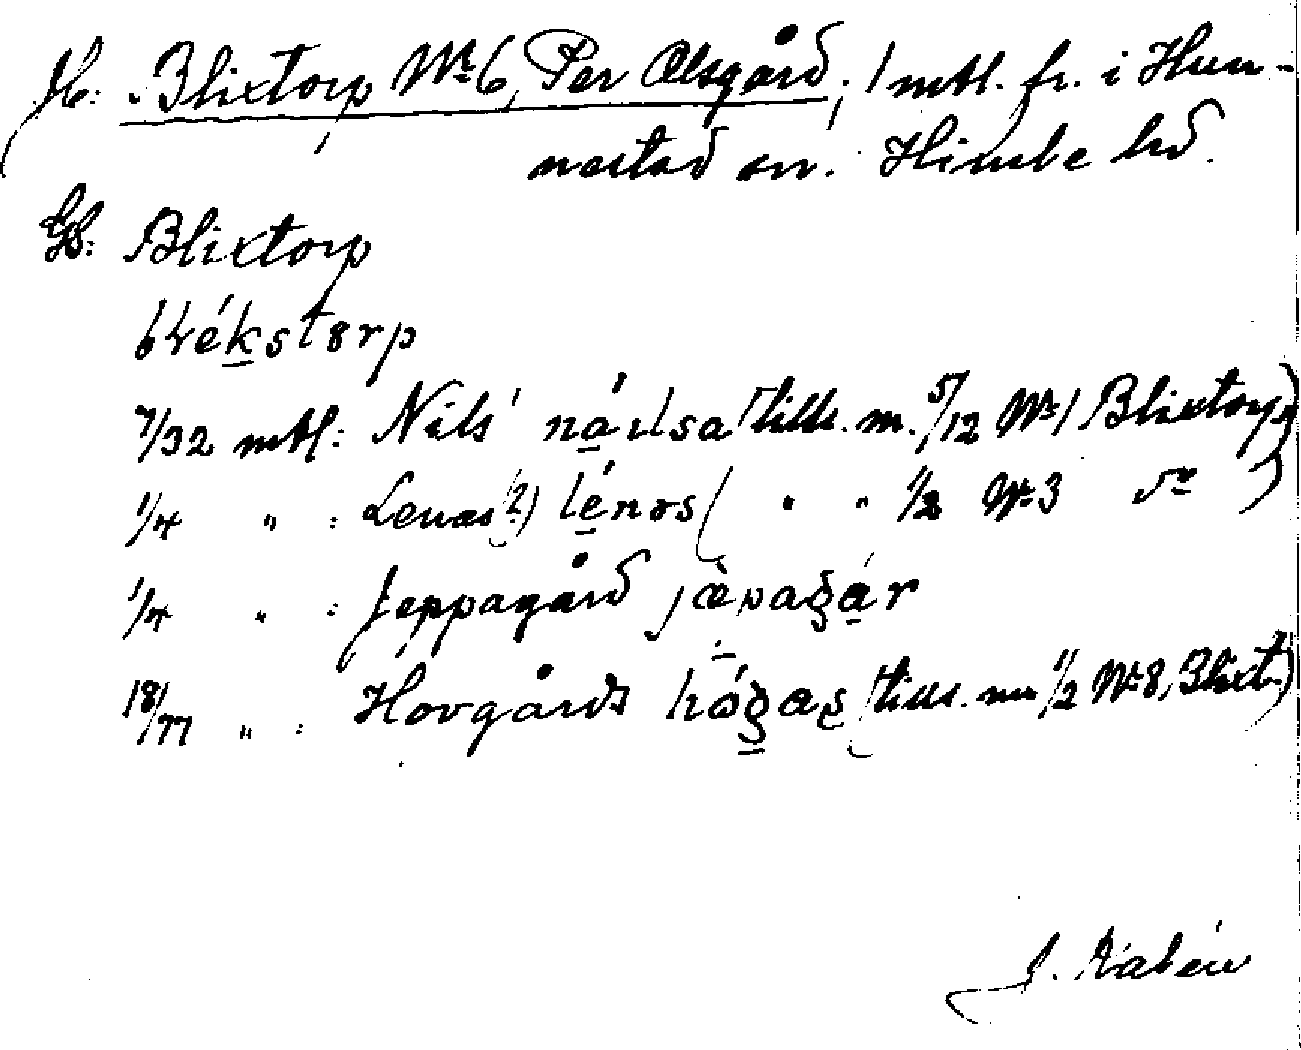 Jb: Blixtorp No 6, Per Olsgård; 1 mtl. fr. i Hun-
nestad sn. Himle hd.
Gb: Blixtorp
blékstorp
7/32 mtl: Nils' (tills. m. 5/12 No 1 Blixtorp)
1/4 " : Lenas (?) lénos ( " " 1/2 No 3 do )
1/4 " : Jeppagård jæpagár
18/77 " : Hovgårds hógas (tills. m 1/2 No 8, Blixt.)
J. Kalén